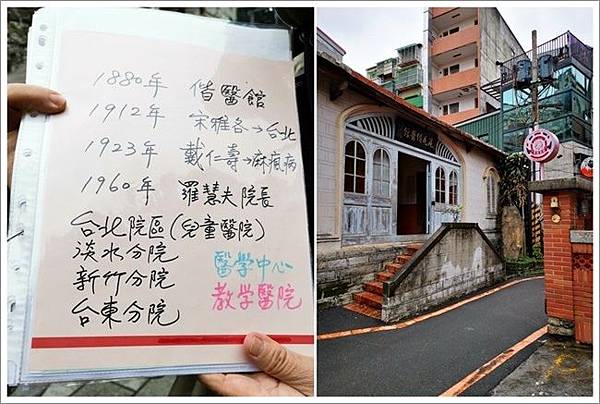 1880年 偕醫館
1912年 宋雅各→台北
1923年 戴仁壽→麻瘋病
1960年 羅慧夫院長
台北院區(兒童醫院)
淡水分院
新竹分院
台東分院
醫學中心
教学醫院
滬尾偕醫館